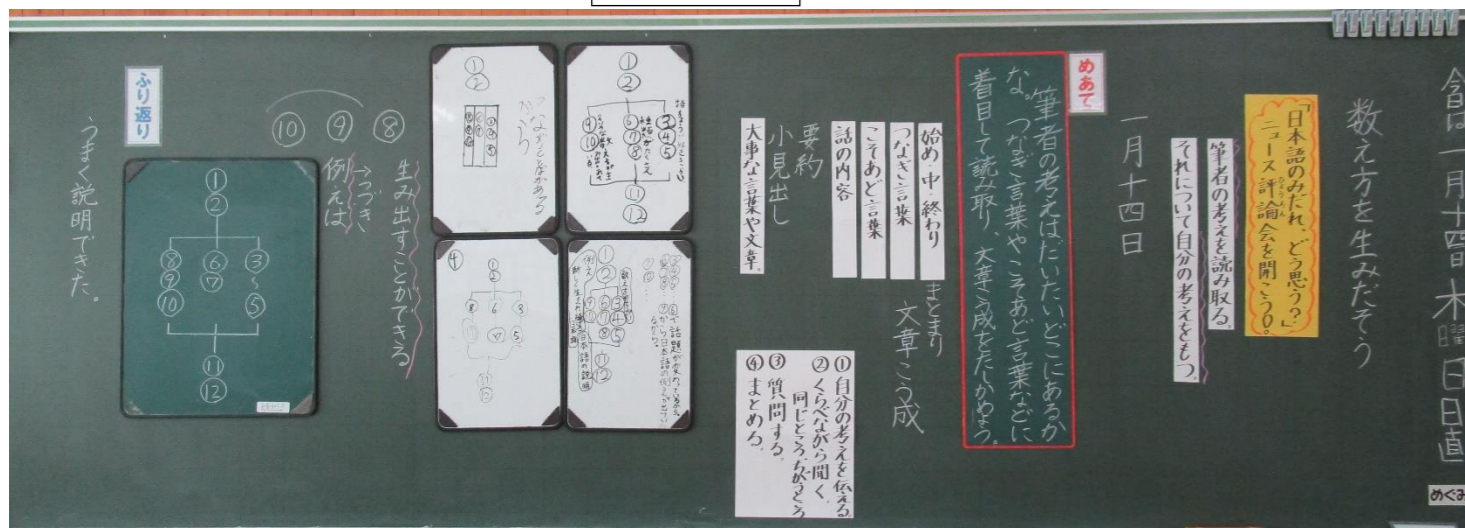 今日は一月十四日木曜日日直
めぐみ
数え方を生みだそう
「日本語のみだれ、どう思う？」
ニュース評論会を開こう。
ひょうろん
筆者の考えを読み取る。
それについて自分の考えをもつ。
一月十四日
めあて
筆者の考えはだいたいどこにあるか
な。つなぎ言葉やこそあど言葉などに
着目して読み取り、文章こう成をたしかめよう。
始め・中・終わり
つなぎ言葉
こそあど言葉
話の内容
要約
小見出し
大事な言葉や文章。
まとまり
文章こう成
①自分の考えを伝える
②くらべながら聞く。
同じところ、ちがうところ
③質問する。
④まとめる。
①
②
③④⑤
⑥⑦⑧
⑨⑩
⑪
⑫
①
②
つなぎことばがある
から
①
②
③④⑤
⑥⑦⑧
⑪
⑫
④
①
②
生み出すことができる
→つづき
例えば
⑧
⑨
⑩
①
②
③〜⑤
⑥⑦
⑧⑨⑩
⑪
⑫
ふり返り
うまく説明できた。